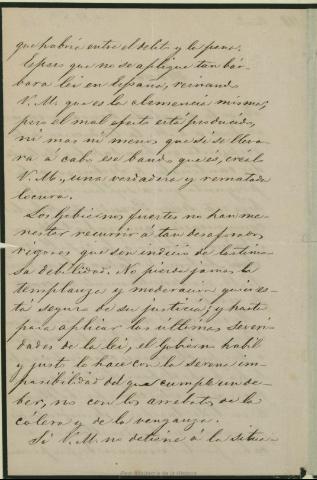 que habría entre el delito y la pena.
Espero que no se aplique tan bár-
bara lei en España, reinando
V. M. que es la clemencia misma;
pero el mal efecto está producido,
ni mas ni menos que si se lleva-
ra a cabo ese bando que es, créalo
V. M., una verdadera y rematada
locura.
Los Gobiernos fuertes no han me-
nester recurrir á tan desaforados
rigores que son indicio de lastimo-
sa debilidad. No pierde jamas la
templanza y moderacion quien es-
tá seguro de su justicia; y hasta
para aplicar las últimas severi-
dades de la lei, el Gobierno hábil
y justo lo hace con la serena im-
pasibilidad del que cumple un de-
ber, no con los arrebatos de la
cólera y de la venganza.
Si V. M. no detiene á la situa-